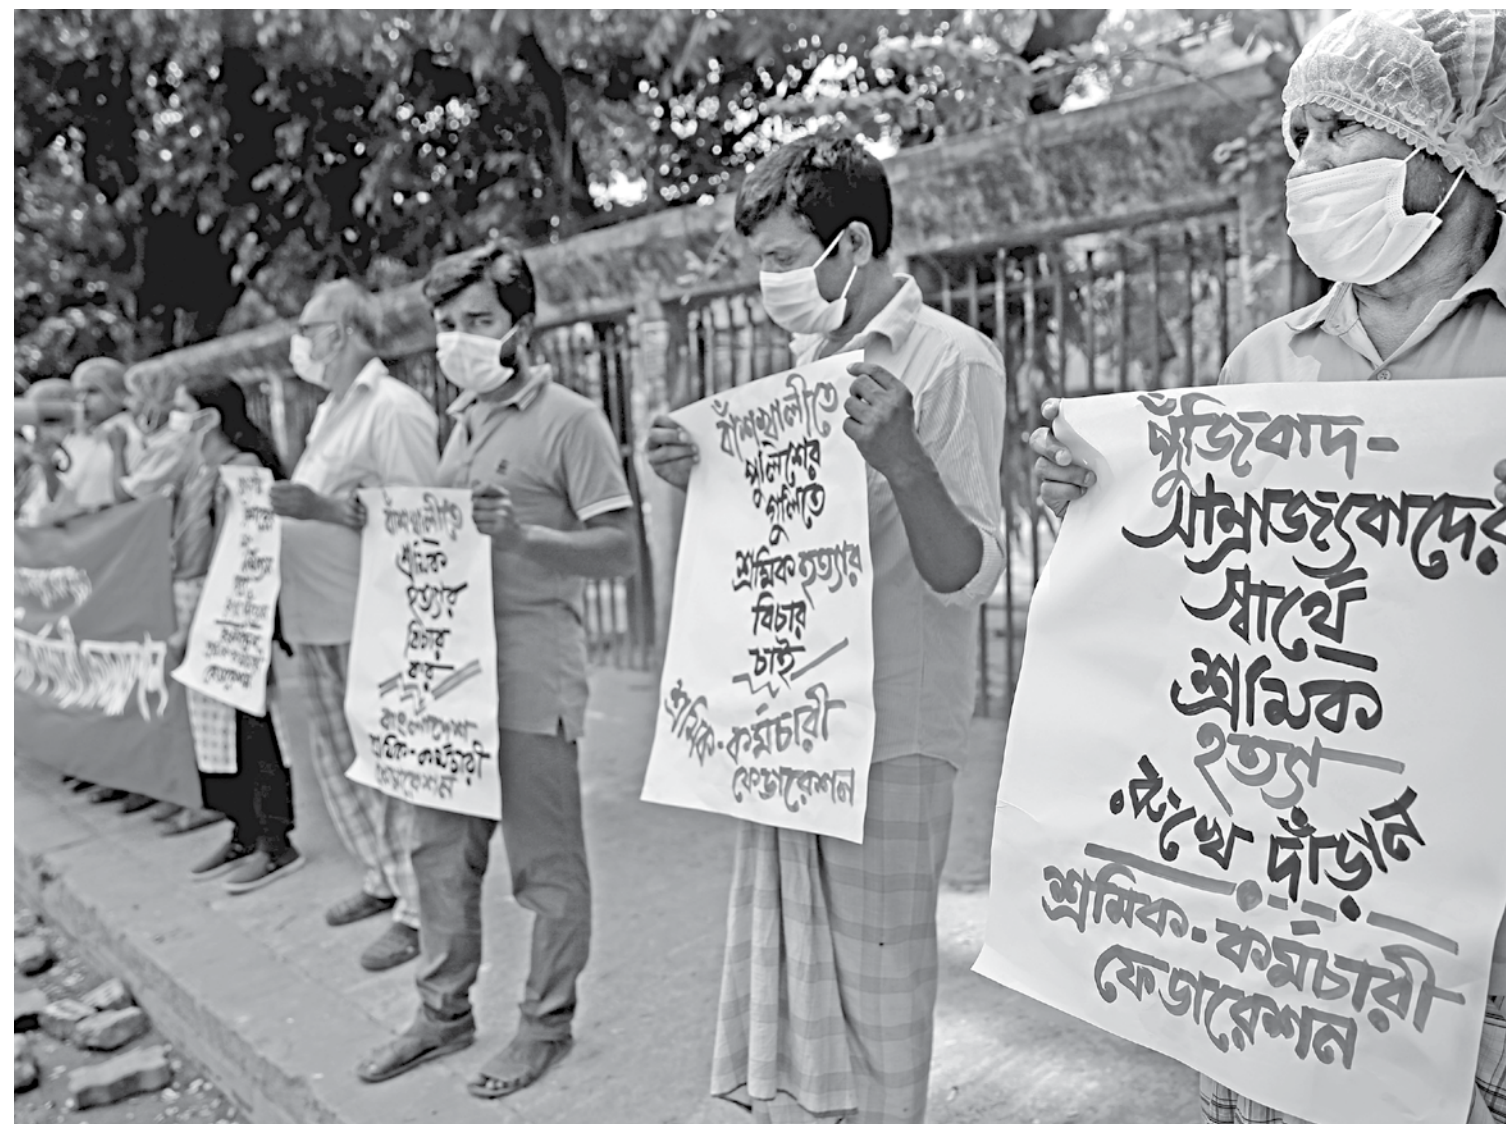 বাঁশখালীতে
শ্রমিক
হত্যার
বিচার
কর
বাংলাদেশ
শ্রমিক-কর্মচারী
ফেডারেশন
বাঁশখালীতে
পুলিশের
গুলিতে
শ্রমিক হত্যার
বিচার
চাই
শ্রমিক-কর্মচারী
ফেডারেশন
পুঁজিবাদ-
সাম্রাজ্যবাদের
স্বার্থে
শ্রমিক
হত্যা
রুখে দাঁড়ান
শ্রমিক-কর্মচারী
ফেডারেশন